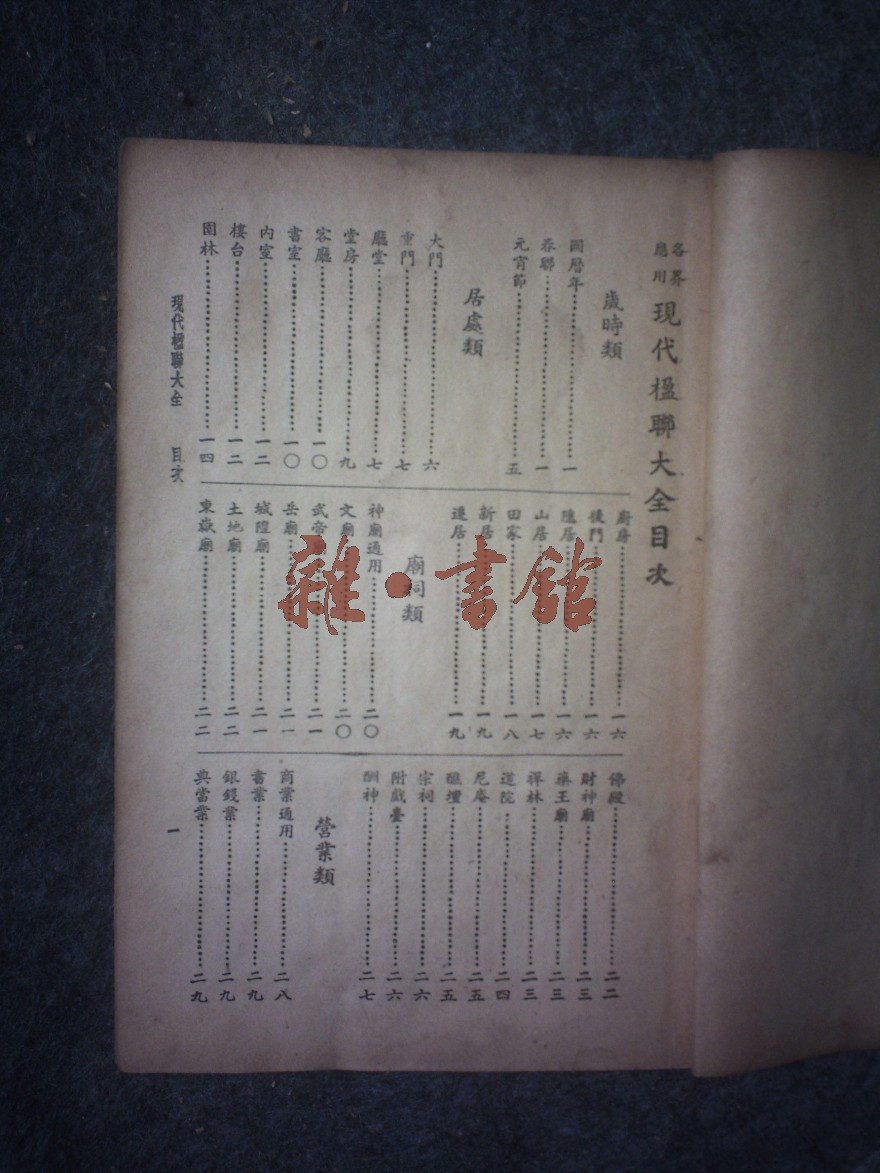 各界應用 現代楹聯大全目次
歲時類
國曆年 一
春聯 一
元宵節 五
居處類
大門 六
重門 七
廳堂 七
堂房 九
客廳 一〇
書室 一〇
內室 一二
樓台 一二
園林 一四
廚房 一六
後門 一六
隱居 一六
山居 一七
田家 一八
新居 一九
遷居 一九
廟祠類
神廟通用 二〇
文廟 二〇
武帝 二一
岳廟 二一
城隍廟 二一
土地廟 二二
東嶽廟 二二
佛殿 二二
財神廟 二三
藥王廟 二三
禪林 二三
道院 二四
尼庵 二五
醮壇 二五
宗祠 二六
附戲臺 二六
酬神 二七
營業類
商業通用 二八
書業 二九
銀錢業 二九
典當業 二九
現代楹聯大全 目次 一
雜·書館